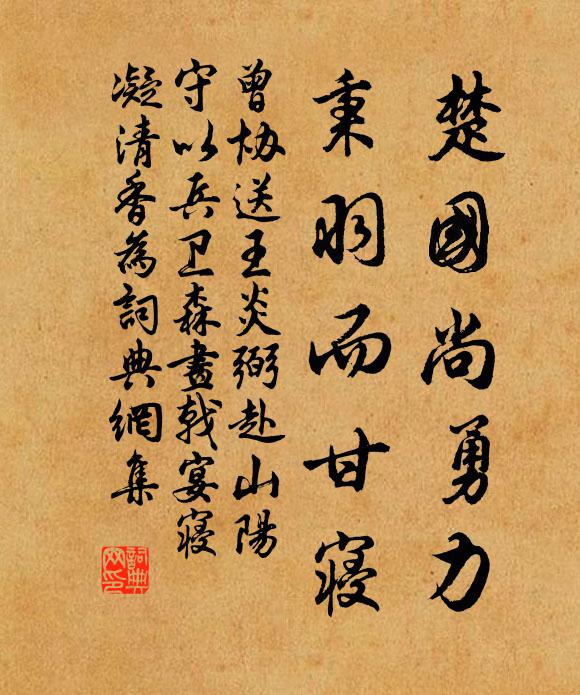 楚國尚勇力
秉羽而甘寢
曾协送王炎弼赴山陽
守以兵卫森畫戟宴寢
凝清香為詞典網集
詞典
网印